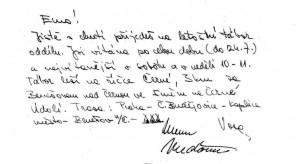 Emo!
Jistě a chutí přijedeš na letošní tábor
oddílu. Jsi vítána po celou dobu (do 24.7.)
a nejvítanější v sobotu a v neděli 10-11.
Tábor leží na říčce Černé, 3km za
Benešovem nad Černou ve směru na Černé
Údolí. Trasa: Praha - Č. Budějovice - Kaplice
město - Benešov n/Č. -